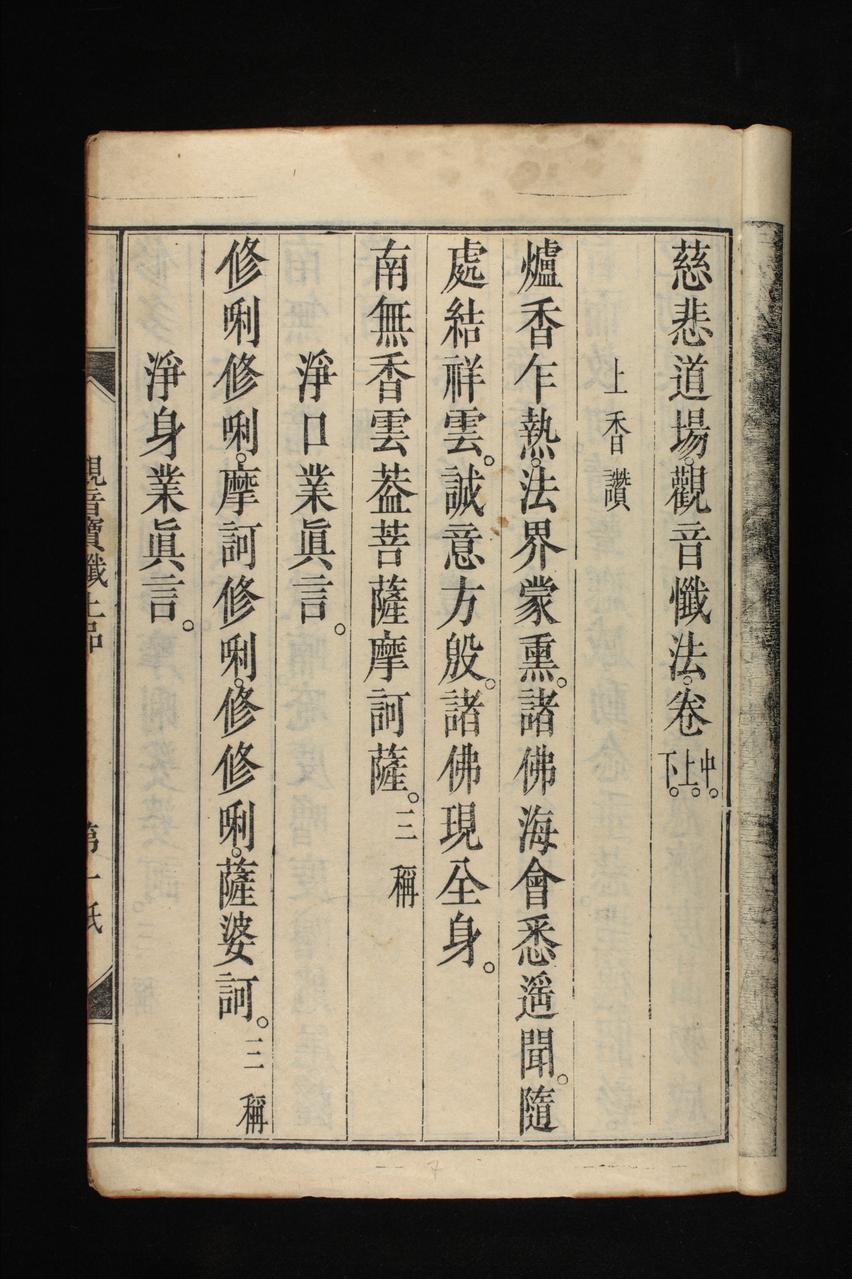 慈悲道場。觀音懺法。卷 中。上。下。
上香讚
爐香乍熱。法界蒙熏。諸佛海會悉遥聞。隨
處結祥雲。誠意方殷。諸佛現全身。
南無香雲葢菩薩摩訶薩。三稱
淨口業眞言。
修唎修唎。摩訶修唎。修修唎。薩婆訶。三稱
淨身業眞言。
觀音寶懺 第一紙